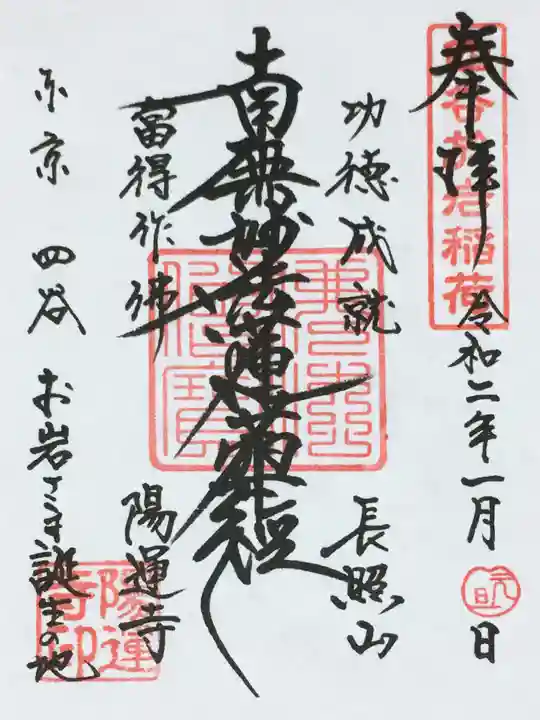 奉拝
四谷於岩稲荷
令和二年一月
元旦
日
功徳成就
長照山
南無妙法蓮華経
當得作佛
陽運寺
東京 四谷 お岩さま誕生の地
陽運
寺印